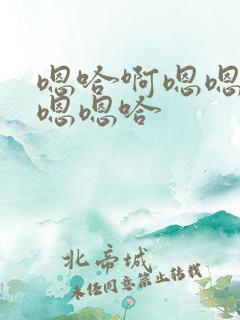 嗯哈啊嗯嗯
嗯嗯哈
北帝城
未经同意禁止转载